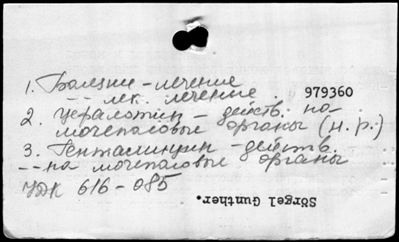 1. Болезни - лечение
-- лек. лечение.
979360
2. Цефалотин - действ. на
мочеполовые органы (н.р.)
3. Гентамицин - действ.
-- на мочеполовые органы
УДК 616-085
Sörgel Gunther.